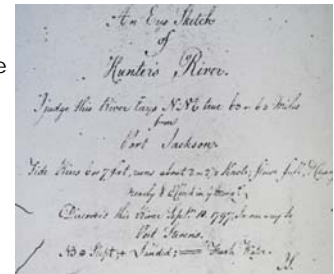 e
An Eye Sketch
of
Hunter's River.
I judge this River lays N.N.E true 60 or 62 Miles
from
Port Jackson
Tide Rises 6 or 7 feet, runs about 2 or 2½ Knots; flows full
nearly
Discover'd this River Septr. 10. 1797, In my way to
Port Stevens.
NB Fresh Water.